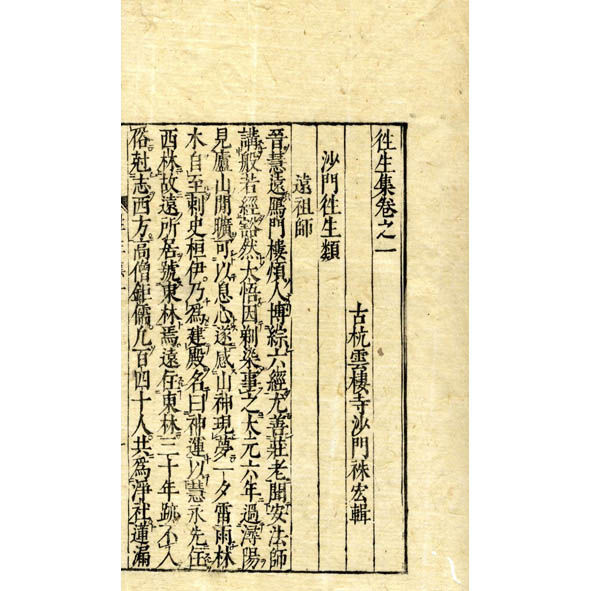 徃生集卷之一
古杭雲棲寺沙門袾宏輯
沙門徃生類
遠祖師
晉慧遠鴈門樓煩人博綜六經尤善莊老聞安法師
講般若經豁然大悟因剃染事之大元六年過潯陽
見廬山閒曠可以息心遂感山神現夢一夕雷雨林
木自至刺史桓伊乃爲建殿名曰神運以慧永先住
西林故遠所居號東林焉遠住東林三十年跡不入
俗尅志西方高僧鉅儒凡百四十人共爲淨社蓮漏